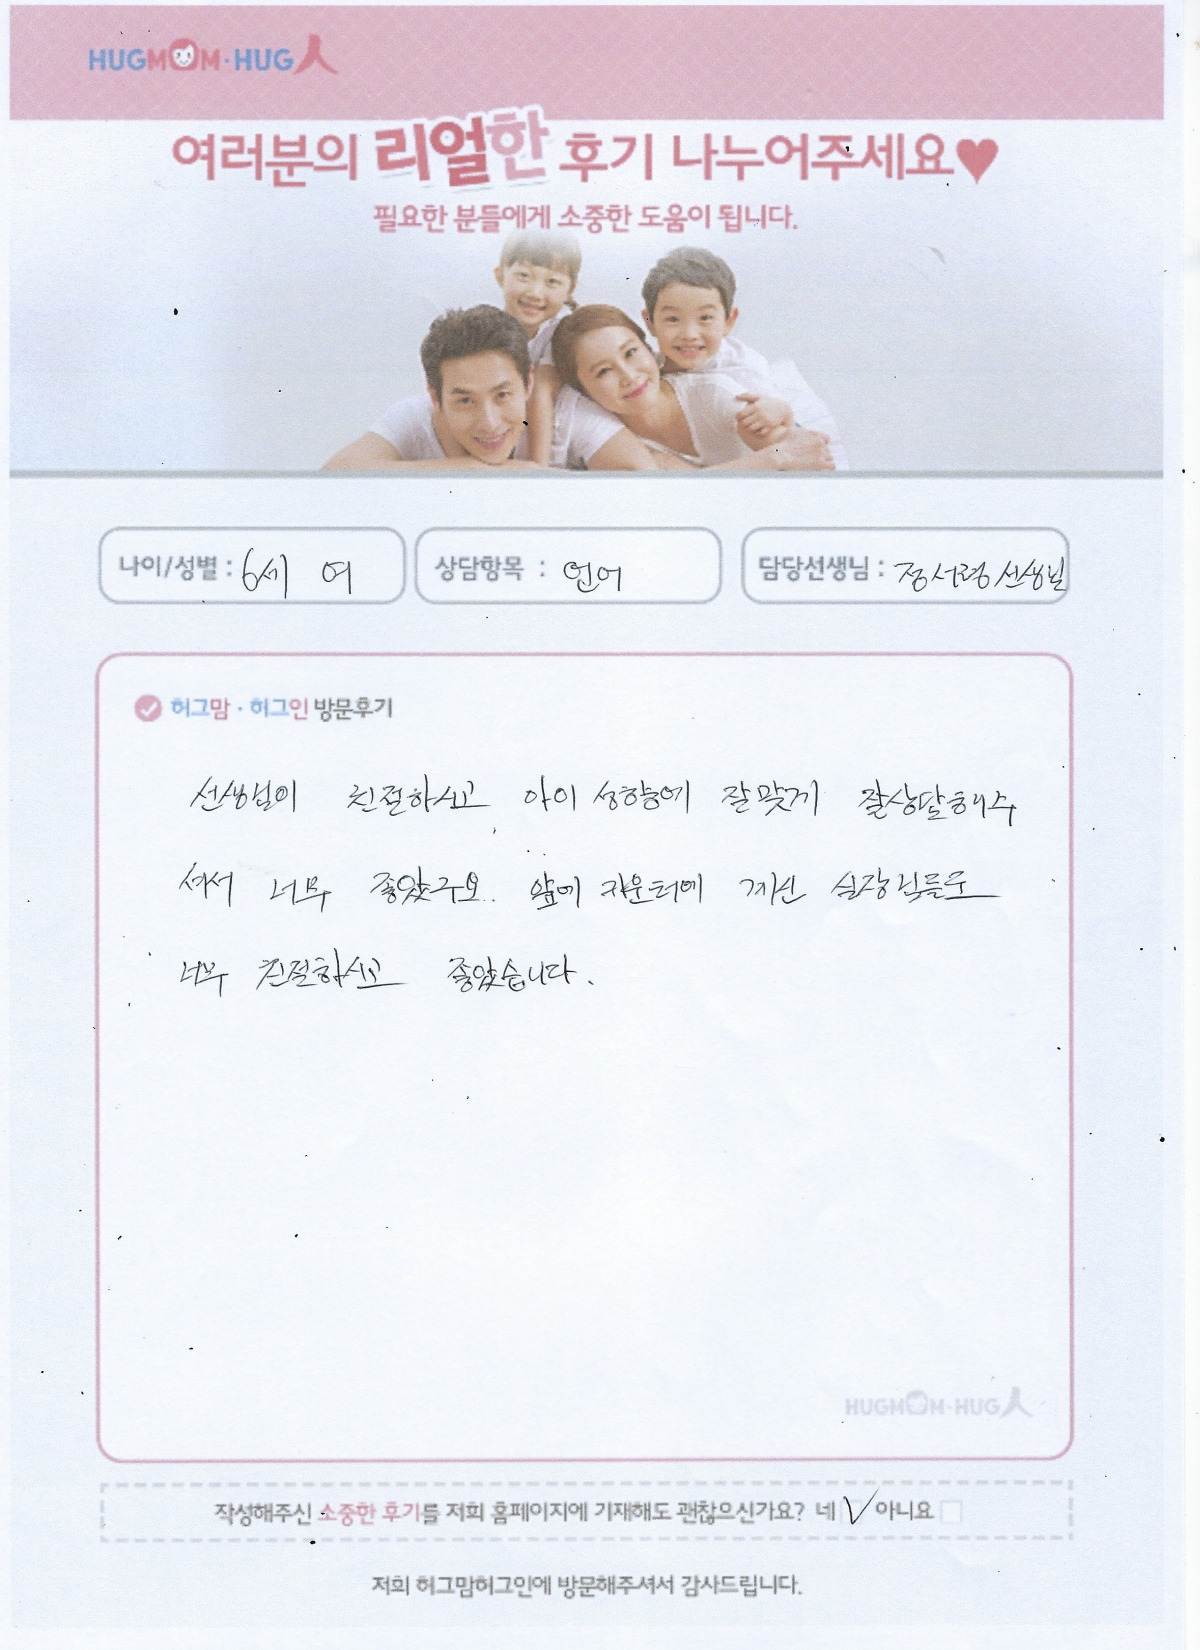 HUGMOM·HUG人
여러분의 리얼한 후기 나누어주세요♥
필요한 분들에게 소중한 도움이 됩니다.
나이/성별 : 6세 여
상담항목 : 언어
담당선생님 : 정서령 선생님
허그맘·허그인 방문후기
선생님이 친절하시고 아이 성향에 잘맞게 잘상담해주
셔서 너무 좋았구요.. 앞에 카운터에 계신 실장님들도
너무 친절하시고 좋았습니다.
HUGMOM·HUG人
작성해주신 소중한 후기를 저희 홈페이지에 기재해도 괜찮으신가요? 네 ✓ 아니요 □
저희 허그맘허그인에 방문해주셔서 감사드립니다.